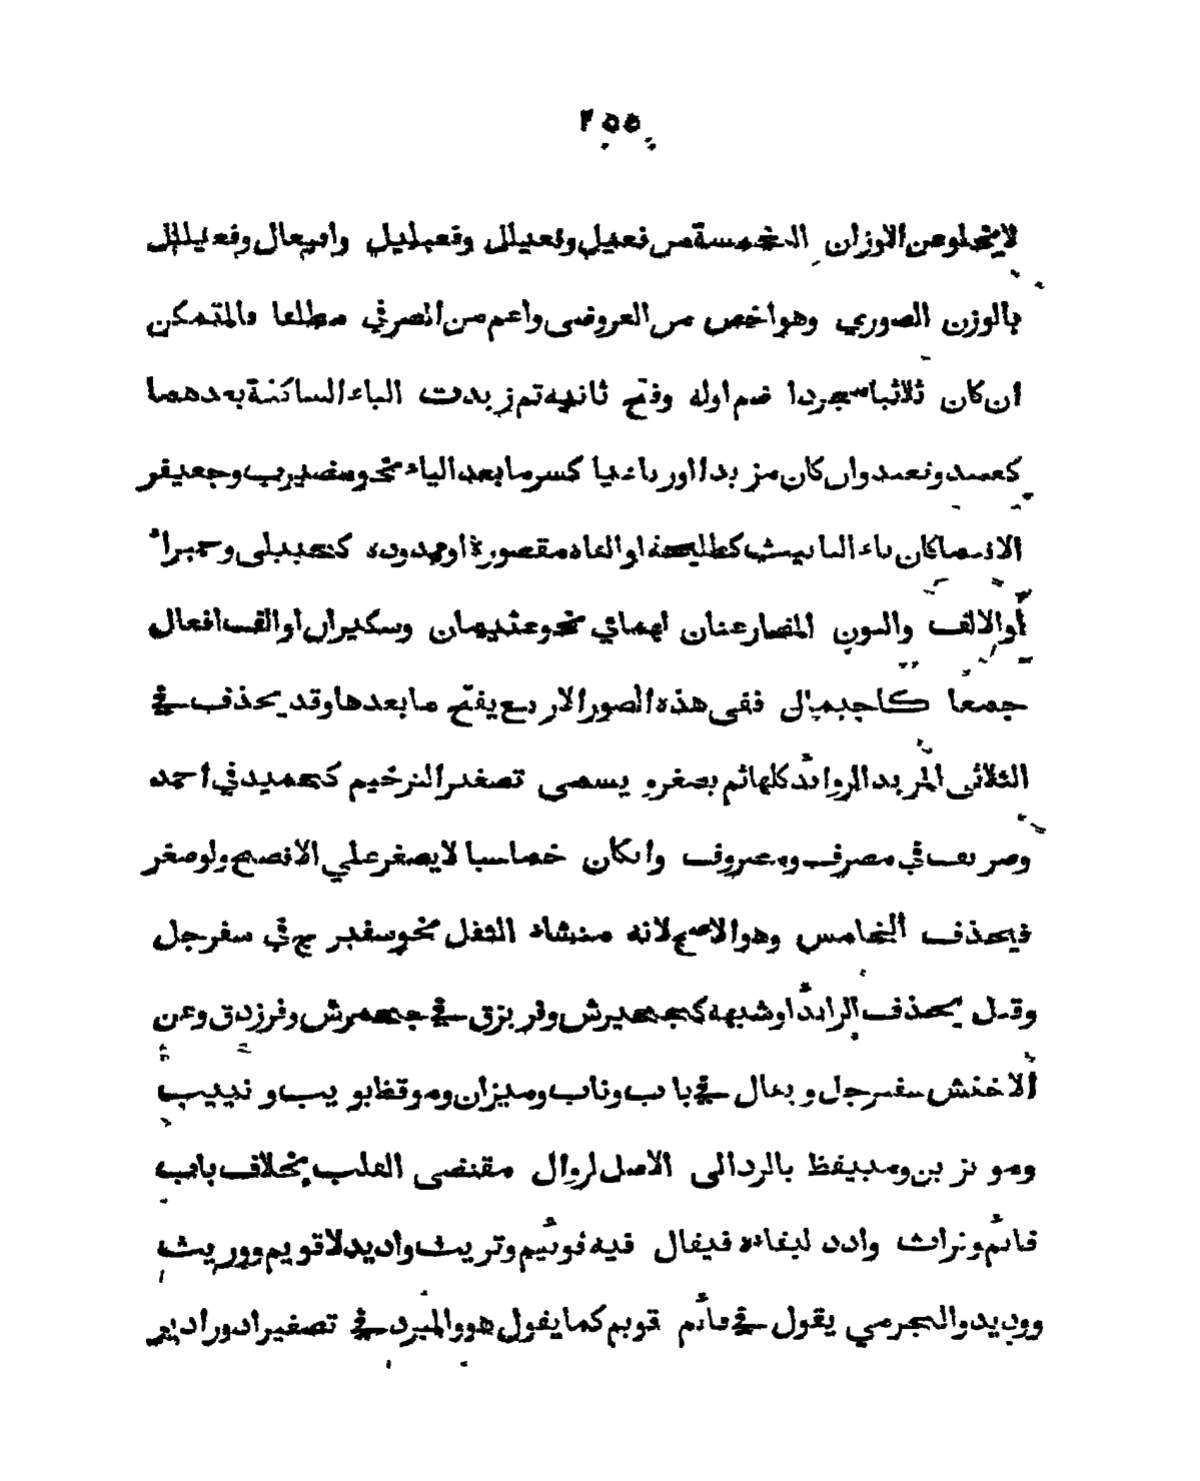 ٢٥٥
لا يخلو عن الاوزان الخمسة من فعيل وفعيلل وفعيليل وافيعال وفعيلال
بالوزن الصوري وهو اخص من العروضى واعم من الصرفي مطلقا فالمتمكن
ان كان ثلاثيا مجردا ضم اوله وفتح ثانيه ثم زيدت الياء الساكنة بعدهما
كعبيد ونعيد وان كان مزيدا اور باعيا كسر ما بعد الياء نحو مضيرب وجعيفر
الا فيما كان تاء التانيث كطليحة او الفاه مقصورة او ممدودة كحبيلى وحميراء
أو الالف والنون المضارعتان لهمائي نحو عثيمان وسكيران او الف افعال
جمعا كاجيمال ففى هذه الصور الاربع يفتح ما بعدها وقد يحذف في
الثلاثى المزيد الزوائد كلها ثم يصغر و يسمى تصغير الترخيم كحميد في أحمد
وصريف في مصرف ومعروف وانكان خماسيا لا يصغر علي الافصح ولو صغر
فيحذف الخامس وهو الاصح لانه منشاء الثقل نحو سفير ج في سفرجل
وقيل يحذف الزائد او شبهه كجحيرش وفريزق في جحمرش وفرزدق وعن
ألاخفش سفيرجل و يقال في باب وناب وميزان وموقظ بويب و نييب
ومويزين ومييقظ بالرد الى الاصل لزوال مقتضى القلب بخلاف باب
قائم وتراث وادد لبقاءه فيقال فيه قوئيم وتريث واديد لا قويم ووريث
ووديد والجرمي يقول في قائم قويم كما يقول هو والمبرد في تصغير ادور اديير